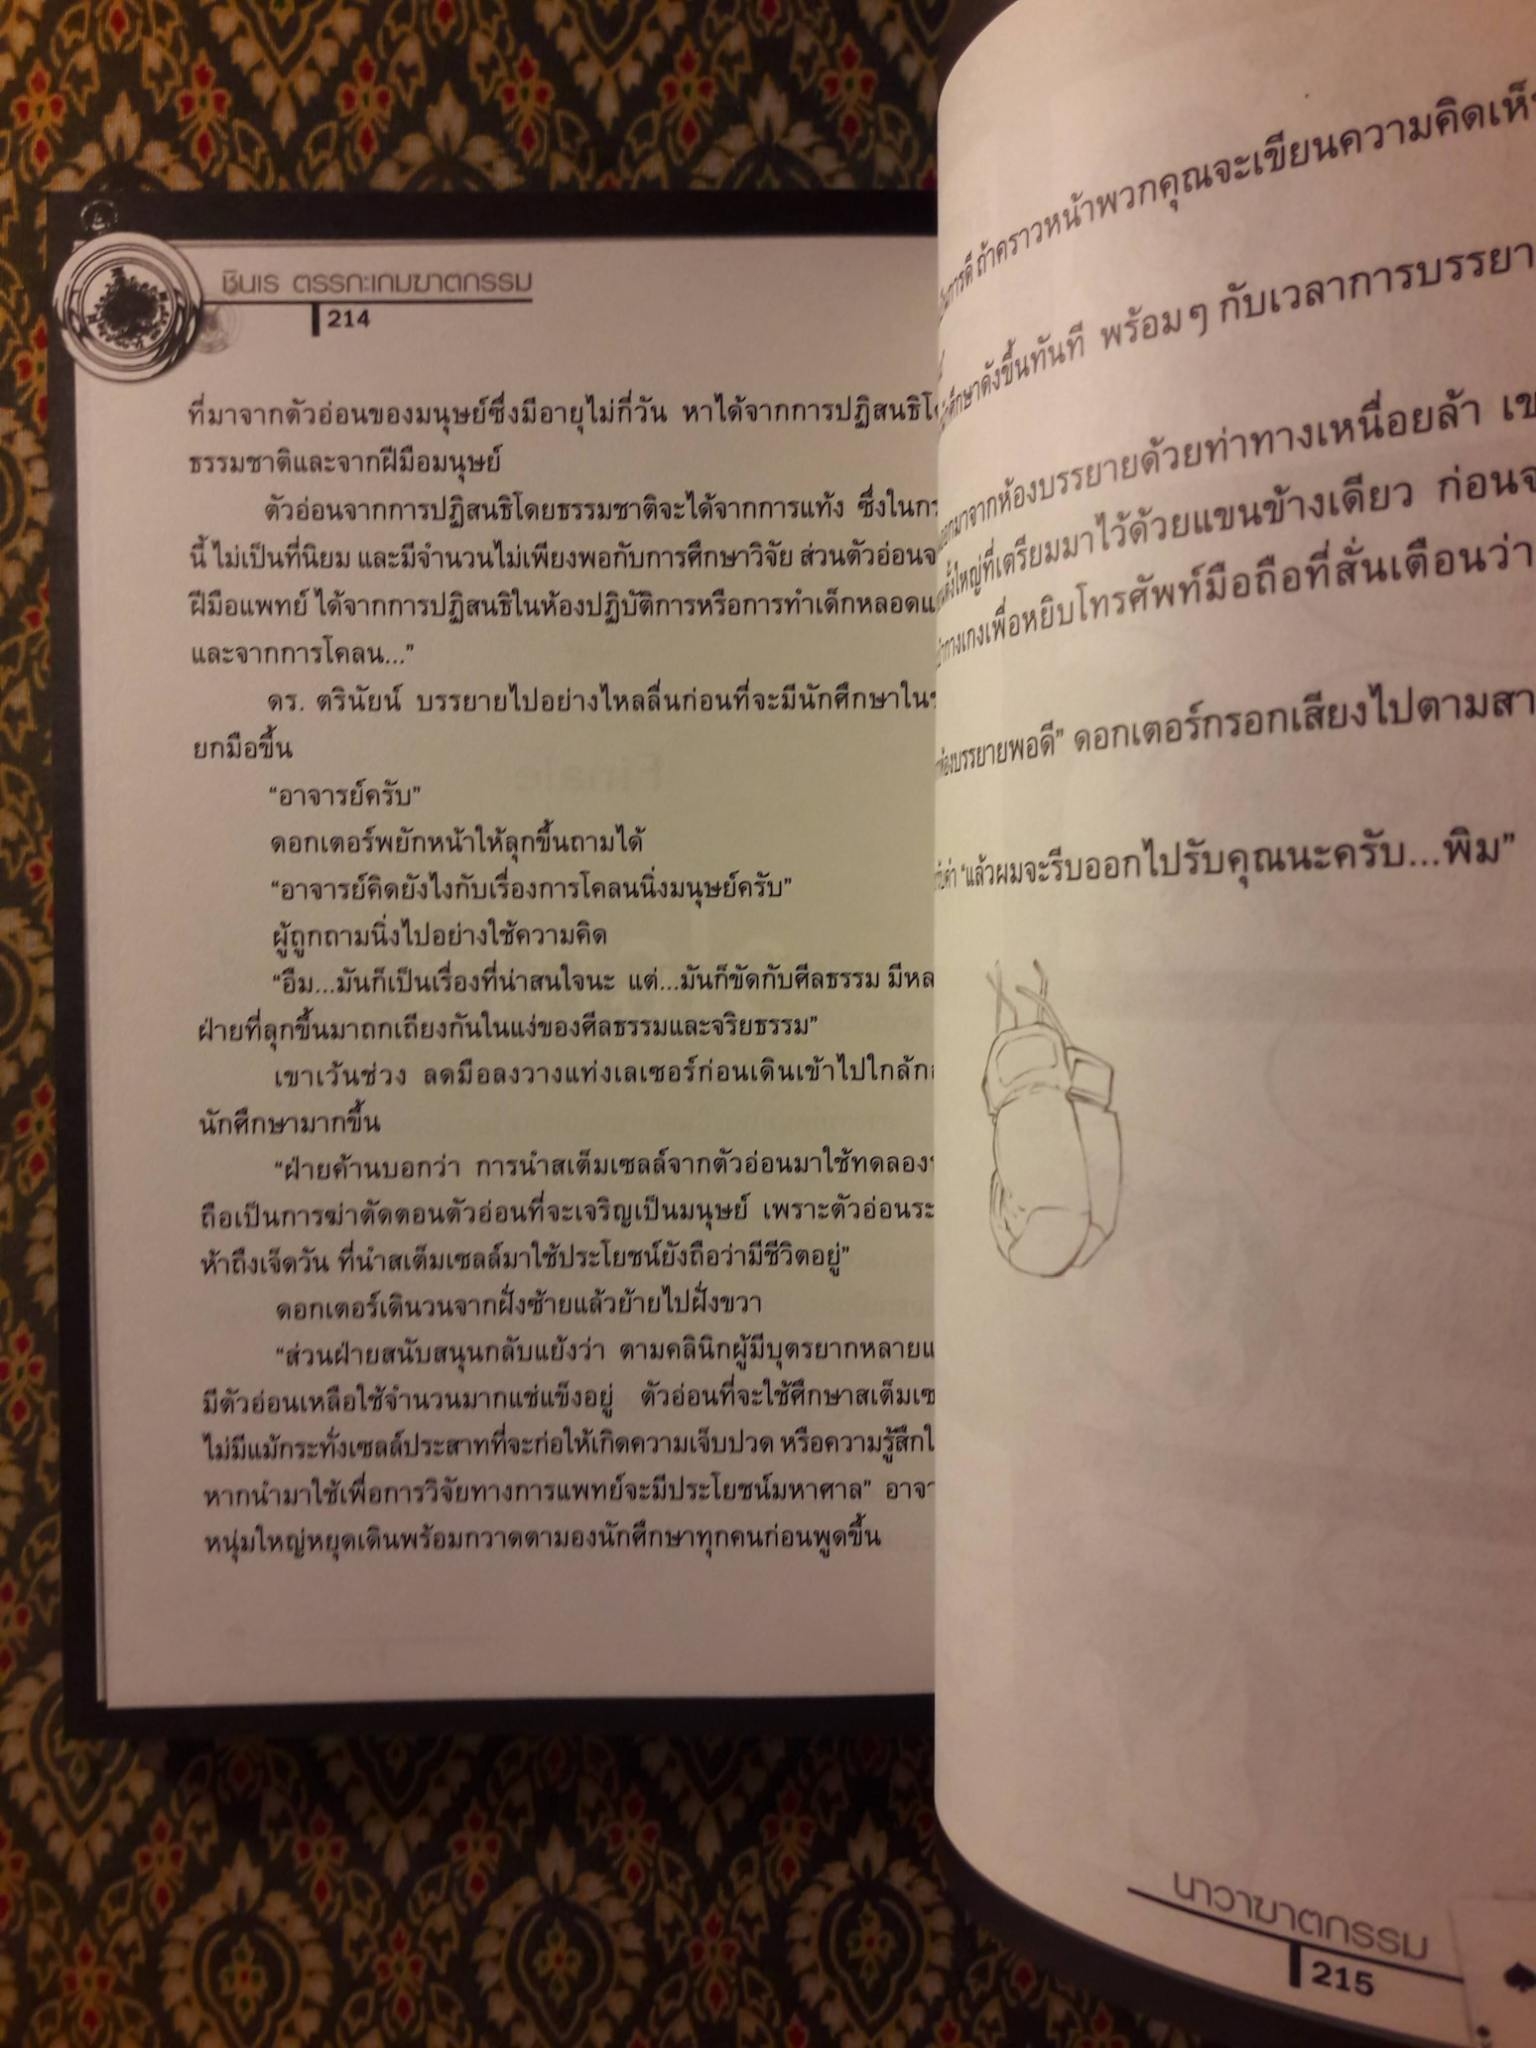 ชินเร ตรรกะเกมฆาตกรรม
214
ที่มาจากตัวอ่อนของมนุษย์ซึ่งมีอายุไม่กี่วัน หาได้จากการปฏิสนธิ
ธรรมชาติและจากฝีมือมนุษย์
ตัวอ่อนจากการปฏิสนธิโดยธรรมชาติจะได้จากการแท้ง ซึ่งใน
นี้ ไม่เป็นที่นิยม และมีจำนวนไม่เพียงพอกับการศึกษาวิจัย ส่วนตัวอ่อน
ฝีมือแพทย์ ได้จากการปฏิสนธิในห้องปฏิบัติการหรือการทำเด็กหลอด
และจากการโคลน...”
ดร. ตรินัยน์ บรรยายไปอย่างไหลลื่นก่อนที่จะมีนักศึกษาใน
ยกมือขึ้น
“อาจารย์ครับ”
ดอกเตอร์พยักหน้าให้ลุกขึ้นถามได้
“อาจารย์คิดยังไงกับเรื่องการโคลนนิ่งมนุษย์ครับ”
ผู้ถูกถามนิ่งไปอย่างใช้ความคิด
“อืม...มันก็เป็นเรื่องที่น่าสนใจนะ แต่...มันก็ขัดกับศีลธรรม มี
ฝ่ายที่ลุกขึ้นมาถกเถียงกันในแง่ของศีลธรรมและจริยธรรม”
เขาเว้นช่วง ลดมือลงวางแท่งเลเซอร์ก่อนเดินเข้าไปใกล้
นักศึกษามากขึ้น
“ฝ่ายค้านบอกว่า การนำสเต็มเซลล์จากตัวอ่อนมาใช้ทดลอง
ถือเป็นการฆ่าตัดตอนตัวอ่อนที่จะเจริญเป็นมนุษย์ เพราะตัวอ่อน
ห้าถึงเจ็ดวัน ที่นำสเต็มเซลล์มาใช้ประโยชน์ยังถือว่ามีชีวิตอยู่”
ดอกเตอร์เดินวนจากฝั่งซ้ายแล้วย้ายไปฝั่งขวา
“ส่วนฝ่ายสนับสนุนกลับแย้งว่า ตามคลินิกผู้มีบุตรยากหลาย
มีตัวอ่อนเหลือใช้จำนวนมากแช่แข็งอยู่ ตัวอ่อนที่จะใช้ศึกษาสเต็ม
ไม่มีแม้กระทั่งเซลล์ประสาทที่จะก่อให้เกิดความเจ็บปวด หรือความรู้สึก
หากนำมาใช้เพื่อการวิจัยทางการแพทย์จะมีประโยชน์มหาศาล”
หนุ่มใหญ่หยุดเดินพร้อมกวาดตามองนักศึกษาทุกคนก่อนพูดขึ้น
การดี ถ้าคราวหน้าพวกคุณจะเขียนความคิด
ศึกษาดังขึ้นทันที พร้อมๆ กับเวลาการ
ออกมาจากห้องบรรยายด้วยท่าทางเหนื่อยล้า
ตั้งใหญ่ที่เตรียมมาไว้ด้วยแขนข้างเดียว ก่อน
กางเกงเพื่อหยิบโทรศัพท์มือถือที่สั่นเตือนว่า
ห้องบรรยายพอดี” ดอกเตอร์กรอกเสียงไปตาม
“แล้วผมจะรีบออกไปรับคุณนะครับ...พิม”
นาวาฆาตกรรม
215